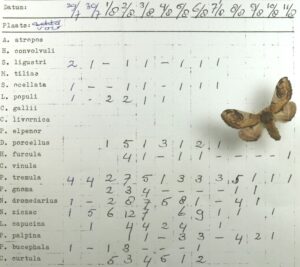 Datum: 29/7 30/7 1/8 2/8 3/8 4/8 5/8 6/8 7/8 8/8 9/8 10/8 11/8
Plaats:
A. atropos
H. convolvuli
S. ligustri 2 1 - 1 1 - 1 1 1
M. tiliae
S. ocellata 1 - - 1 1 - 1 1 1
L. populi 1 - 2 2 1 1
C. gallii
C. livornica
P. elpenor
D. porcellus 1 5 1 3 1 2 1
H. furcula 4 1 - 1 1 - 1 1 1
C. vinula
P. tremula 4 4 2 7 5 1 3 3 3 5 1 1 1
P. gnoma 2 3 4 - - - - 1 1
N. dromedarius 1 - 2 6 7 5 8 1 - 4 1
N. ziczac 1 5 6 12 7 1 6 9 1 1
L. capucina 1 4 4 2 4 1
P. palpina 1 1 - 3 3 - 4 2 1
P. bucephala 1 - 1 3 - - 1
C. curtula 5 3 4 5 1 2